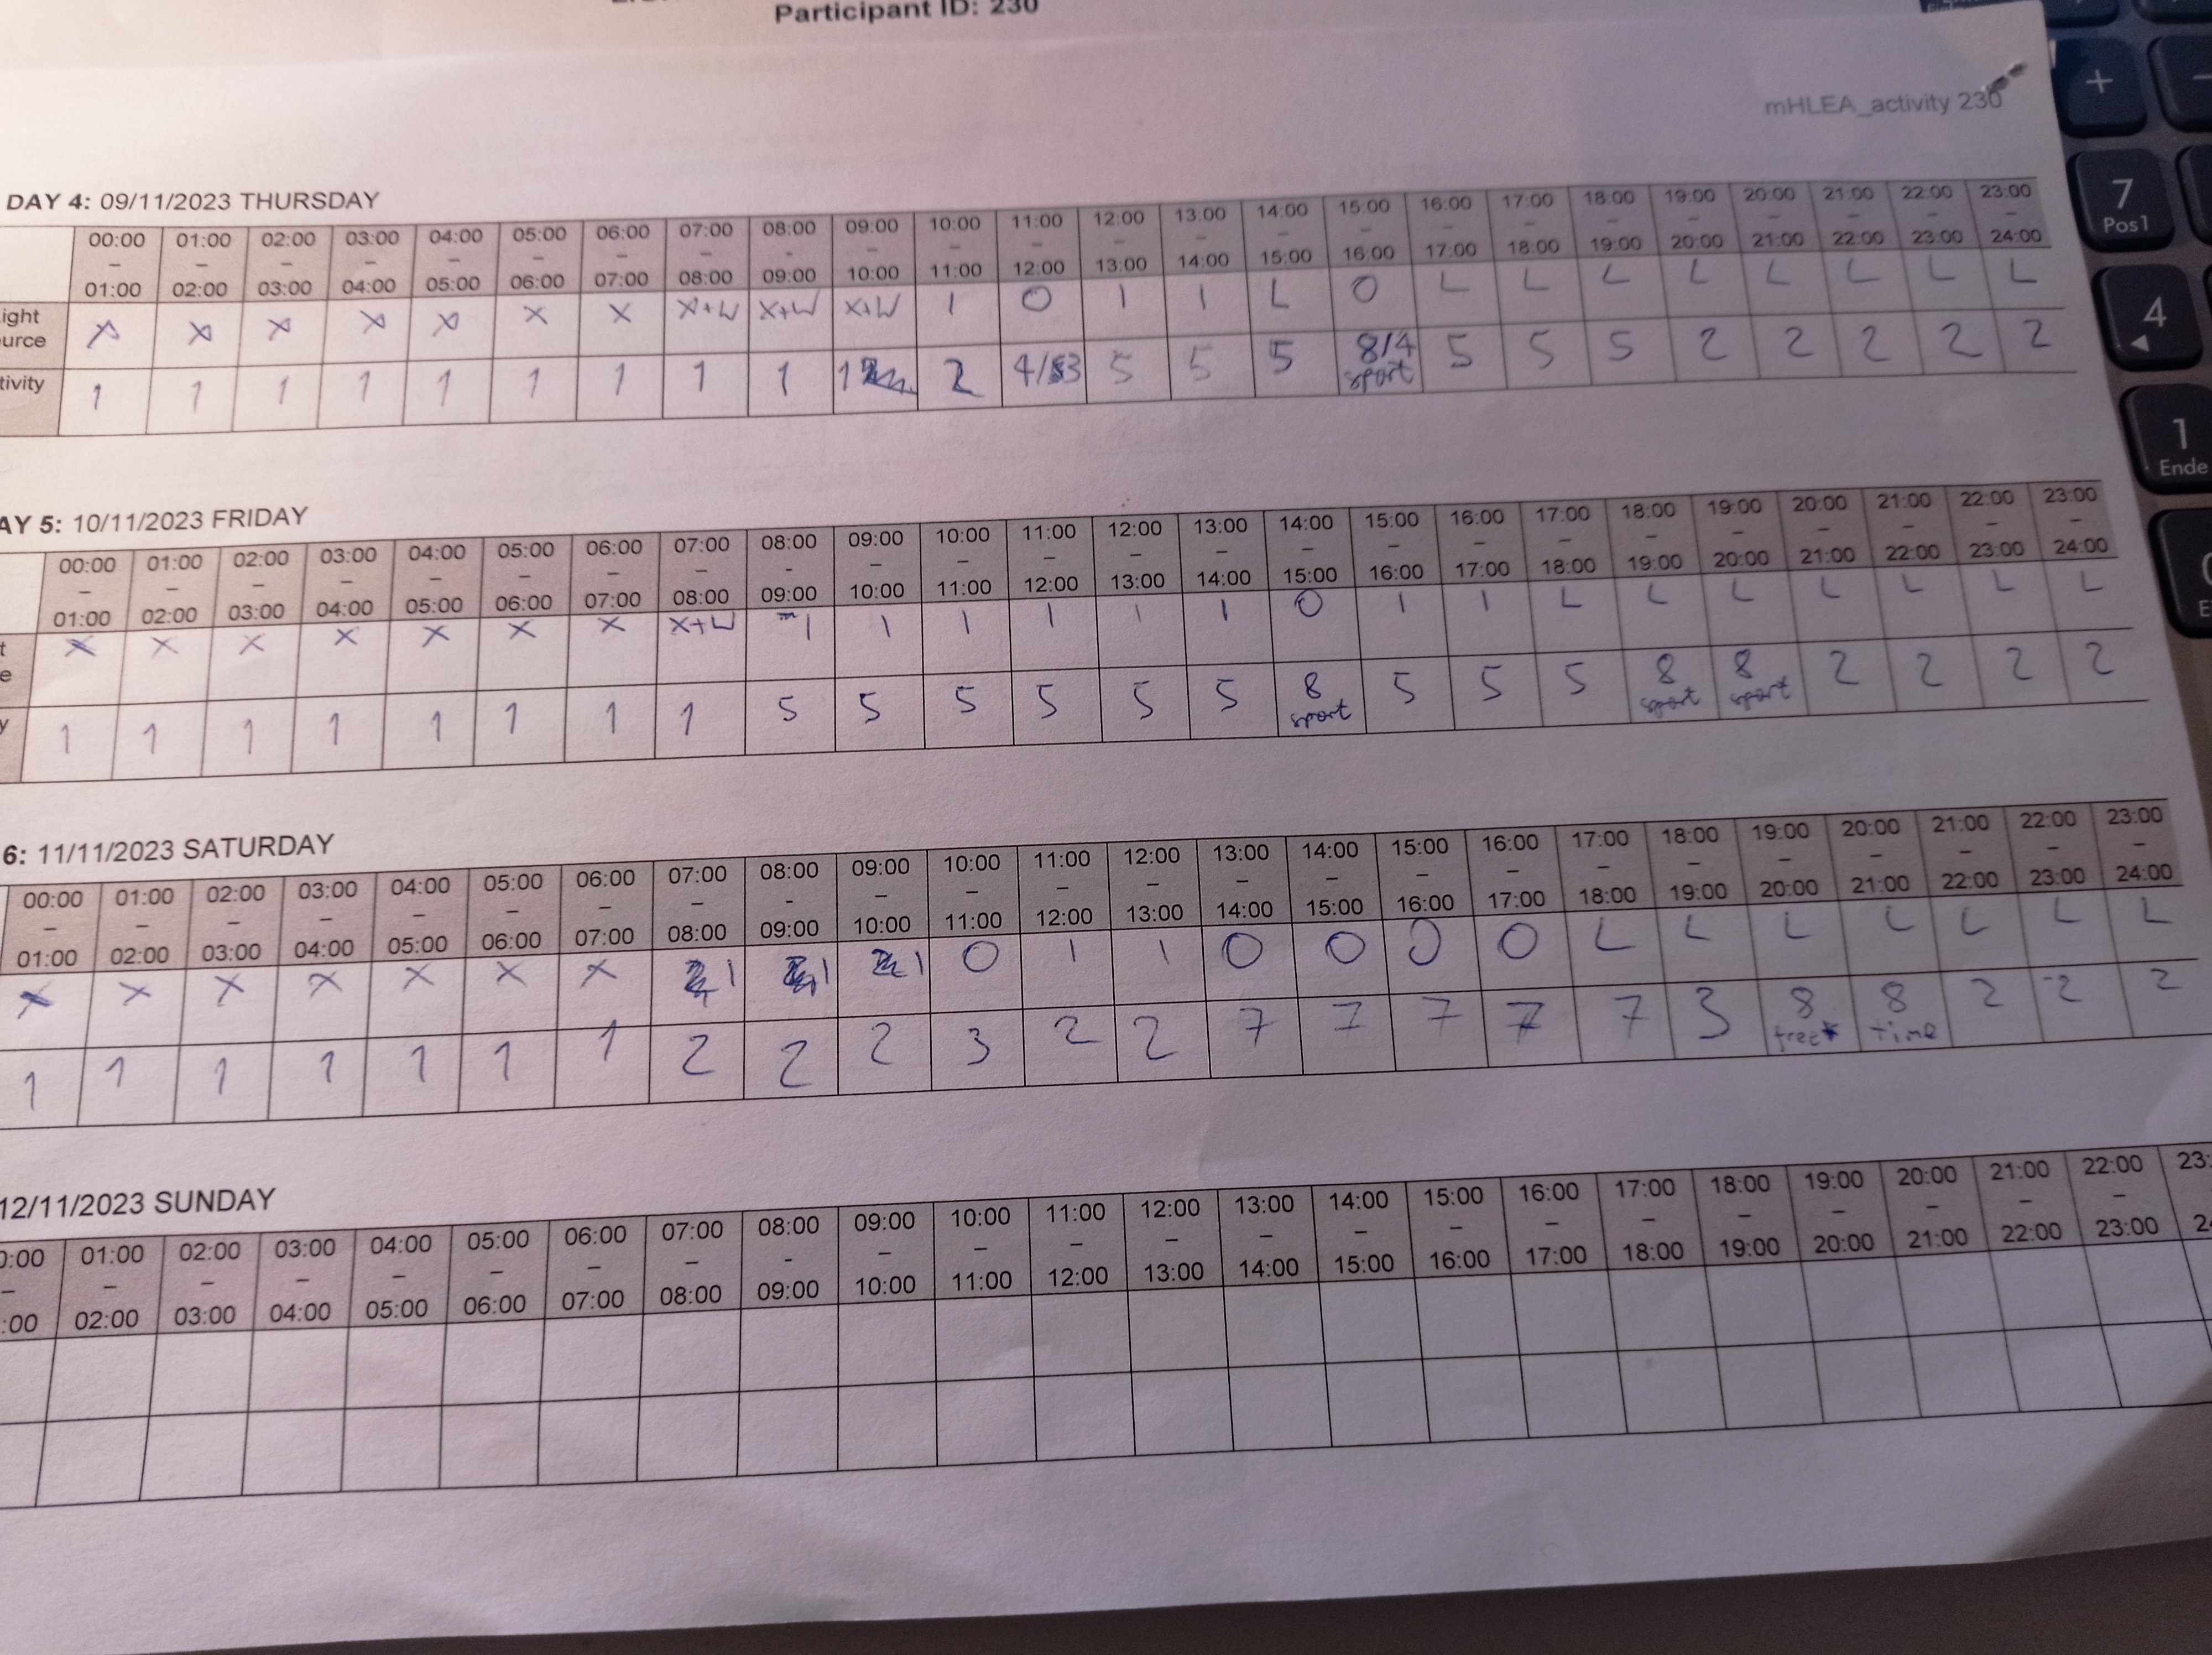 Participant ID: 230
mHLEA_activity 230
DAY 4: 09/11/2023 THURSDAY
00:00 – 01:00 01:00 – 02:00 02:00 – 03:00 03:00 – 04:00 04:00 – 05:00 05:00 – 06:00 06:00 – 07:00 07:00 – 08:00 08:00 – 09:00 09:00 – 10:00 10:00 – 11:00 11:00 – 12:00 12:00 – 13:00 13:00 – 14:00 14:00 – 15:00 15:00 – 16:00 16:00 – 17:00 17:00 – 18:00 18:00 – 19:00 19:00 – 20:00 20:00 – 21:00 21:00 – 22:00 22:00 – 23:00 23:00 – 24:00
ight urce X X X X X X X X+W X+W X+W I O I I L O L L L L L L L L
tivity 1 1 1 1 1 1 1 1 1 1 2 4/3 5 5 5 8/4 sport 5 5 5 2 2 2 2 2
AY 5: 10/11/2023 FRIDAY
00:00 – 01:00 01:00 – 02:00 02:00 – 03:00 03:00 – 04:00 04:00 – 05:00 05:00 – 06:00 06:00 – 07:00 07:00 – 08:00 08:00 – 09:00 09:00 – 10:00 10:00 – 11:00 11:00 – 12:00 12:00 – 13:00 13:00 – 14:00 14:00 – 15:00 15:00 – 16:00 16:00 – 17:00 17:00 – 18:00 18:00 – 19:00 19:00 – 20:00 20:00 – 21:00 21:00 – 22:00 22:00 – 23:00 23:00 – 24:00
t e X X X X X X X X+W I I I I I I O I I L L L L L L L
y 1 1 1 1 1 1 1 1 5 5 5 5 5 5 8 sport 5 5 5 8 sport 8 sport 2 2 2 2
6: 11/11/2023 SATURDAY
00:00 – 01:00 01:00 – 02:00 02:00 – 03:00 03:00 – 04:00 04:00 – 05:00 05:00 – 06:00 06:00 – 07:00 07:00 – 08:00 08:00 – 09:00 09:00 – 10:00 10:00 – 11:00 11:00 – 12:00 12:00 – 13:00 13:00 – 14:00 14:00 – 15:00 15:00 – 16:00 16:00 – 17:00 17:00 – 18:00 18:00 – 19:00 19:00 – 20:00 20:00 – 21:00 21:00 – 22:00 22:00 – 23:00 23:00 – 24:00
X X X X X X X I I I O I I O O O O L L L L L L L
1 1 1 1 1 1 1 2 2 2 3 2 2 7 7 7 7 7 3 8 free 8 time 2 2 2
12/11/2023 SUNDAY
0:00 – :00 01:00 – 02:00 02:00 – 03:00 03:00 – 04:00 04:00 – 05:00 05:00 – 06:00 06:00 – 07:00 07:00 – 08:00 08:00 – 09:00 09:00 – 10:00 10:00 – 11:00 11:00 – 12:00 12:00 – 13:00 13:00 – 14:00 14:00 – 15:00 15:00 – 16:00 16:00 – 17:00 17:00 – 18:00 18:00 – 19:00 19:00 – 20:00 20:00 – 21:00 21:00 – 22:00 22:00 – 23:00 23: 24
+
7
Pos1
4
1
Ende